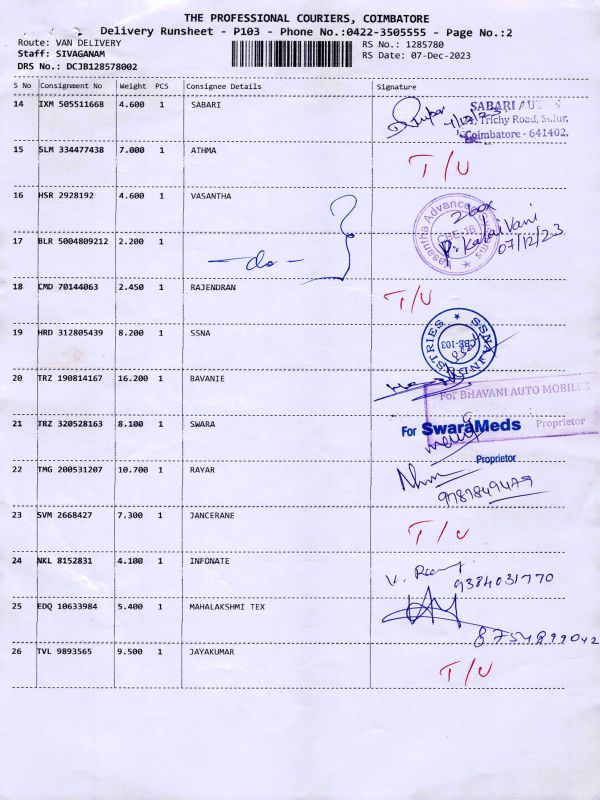 THE PROFESSIONAL COURIERS, COIMBATORE
Delivery Runsheet - P103 - Phone No.:0422-3505555 - Page No.:2
Route: VAN DELIVERY RS No.: 1285780
Staff: SIVAGANAM RS Date: 07-Dec-2023
DRS No.: DCJB128578002
S No Consignment No Weight PCS Consignee Details Signature
14 IXM 505511668 4.600 1 SABARI
SABARI AUTO
Trichy Road, Sulur,
Coimbatore - 641402.
15 SLM 334477438 7.000 1 ATHMA T/U
16 HSR 2928192 4.600 1 VASANTHA
Vasantha Advance Systems
CBE-16
P. Kalai Vani
07/12/23
17 BLR 5004809212 2.200 1 -do-
18 CMD 70144063 2.450 1 RAJENDRAN T/U
19 HRD 312805439 8.200 1 SSNA
SSNA INDUSTRIES
CBE-103
20 TRZ 190814167 16.200 1 BAVANIE
For BHAVANI AUTO MOBILES
Proprietor
21 TRZ 320528163 8.100 1 SWARA
For SwaraMeds
Proprietor
22 TMG 200531207 10.700 1 RAYAR
9787849479
23 SVM 2668427 7.300 1 JANCERANE T/U
24 NKL 8152831 4.100 1 INFONATE
9384031770
25 EDQ 10633984 5.400 1 MAHALAKSHMI TEX
8754899042
26 TVL 9893565 9.500 1 JAYAKUMAR T/U